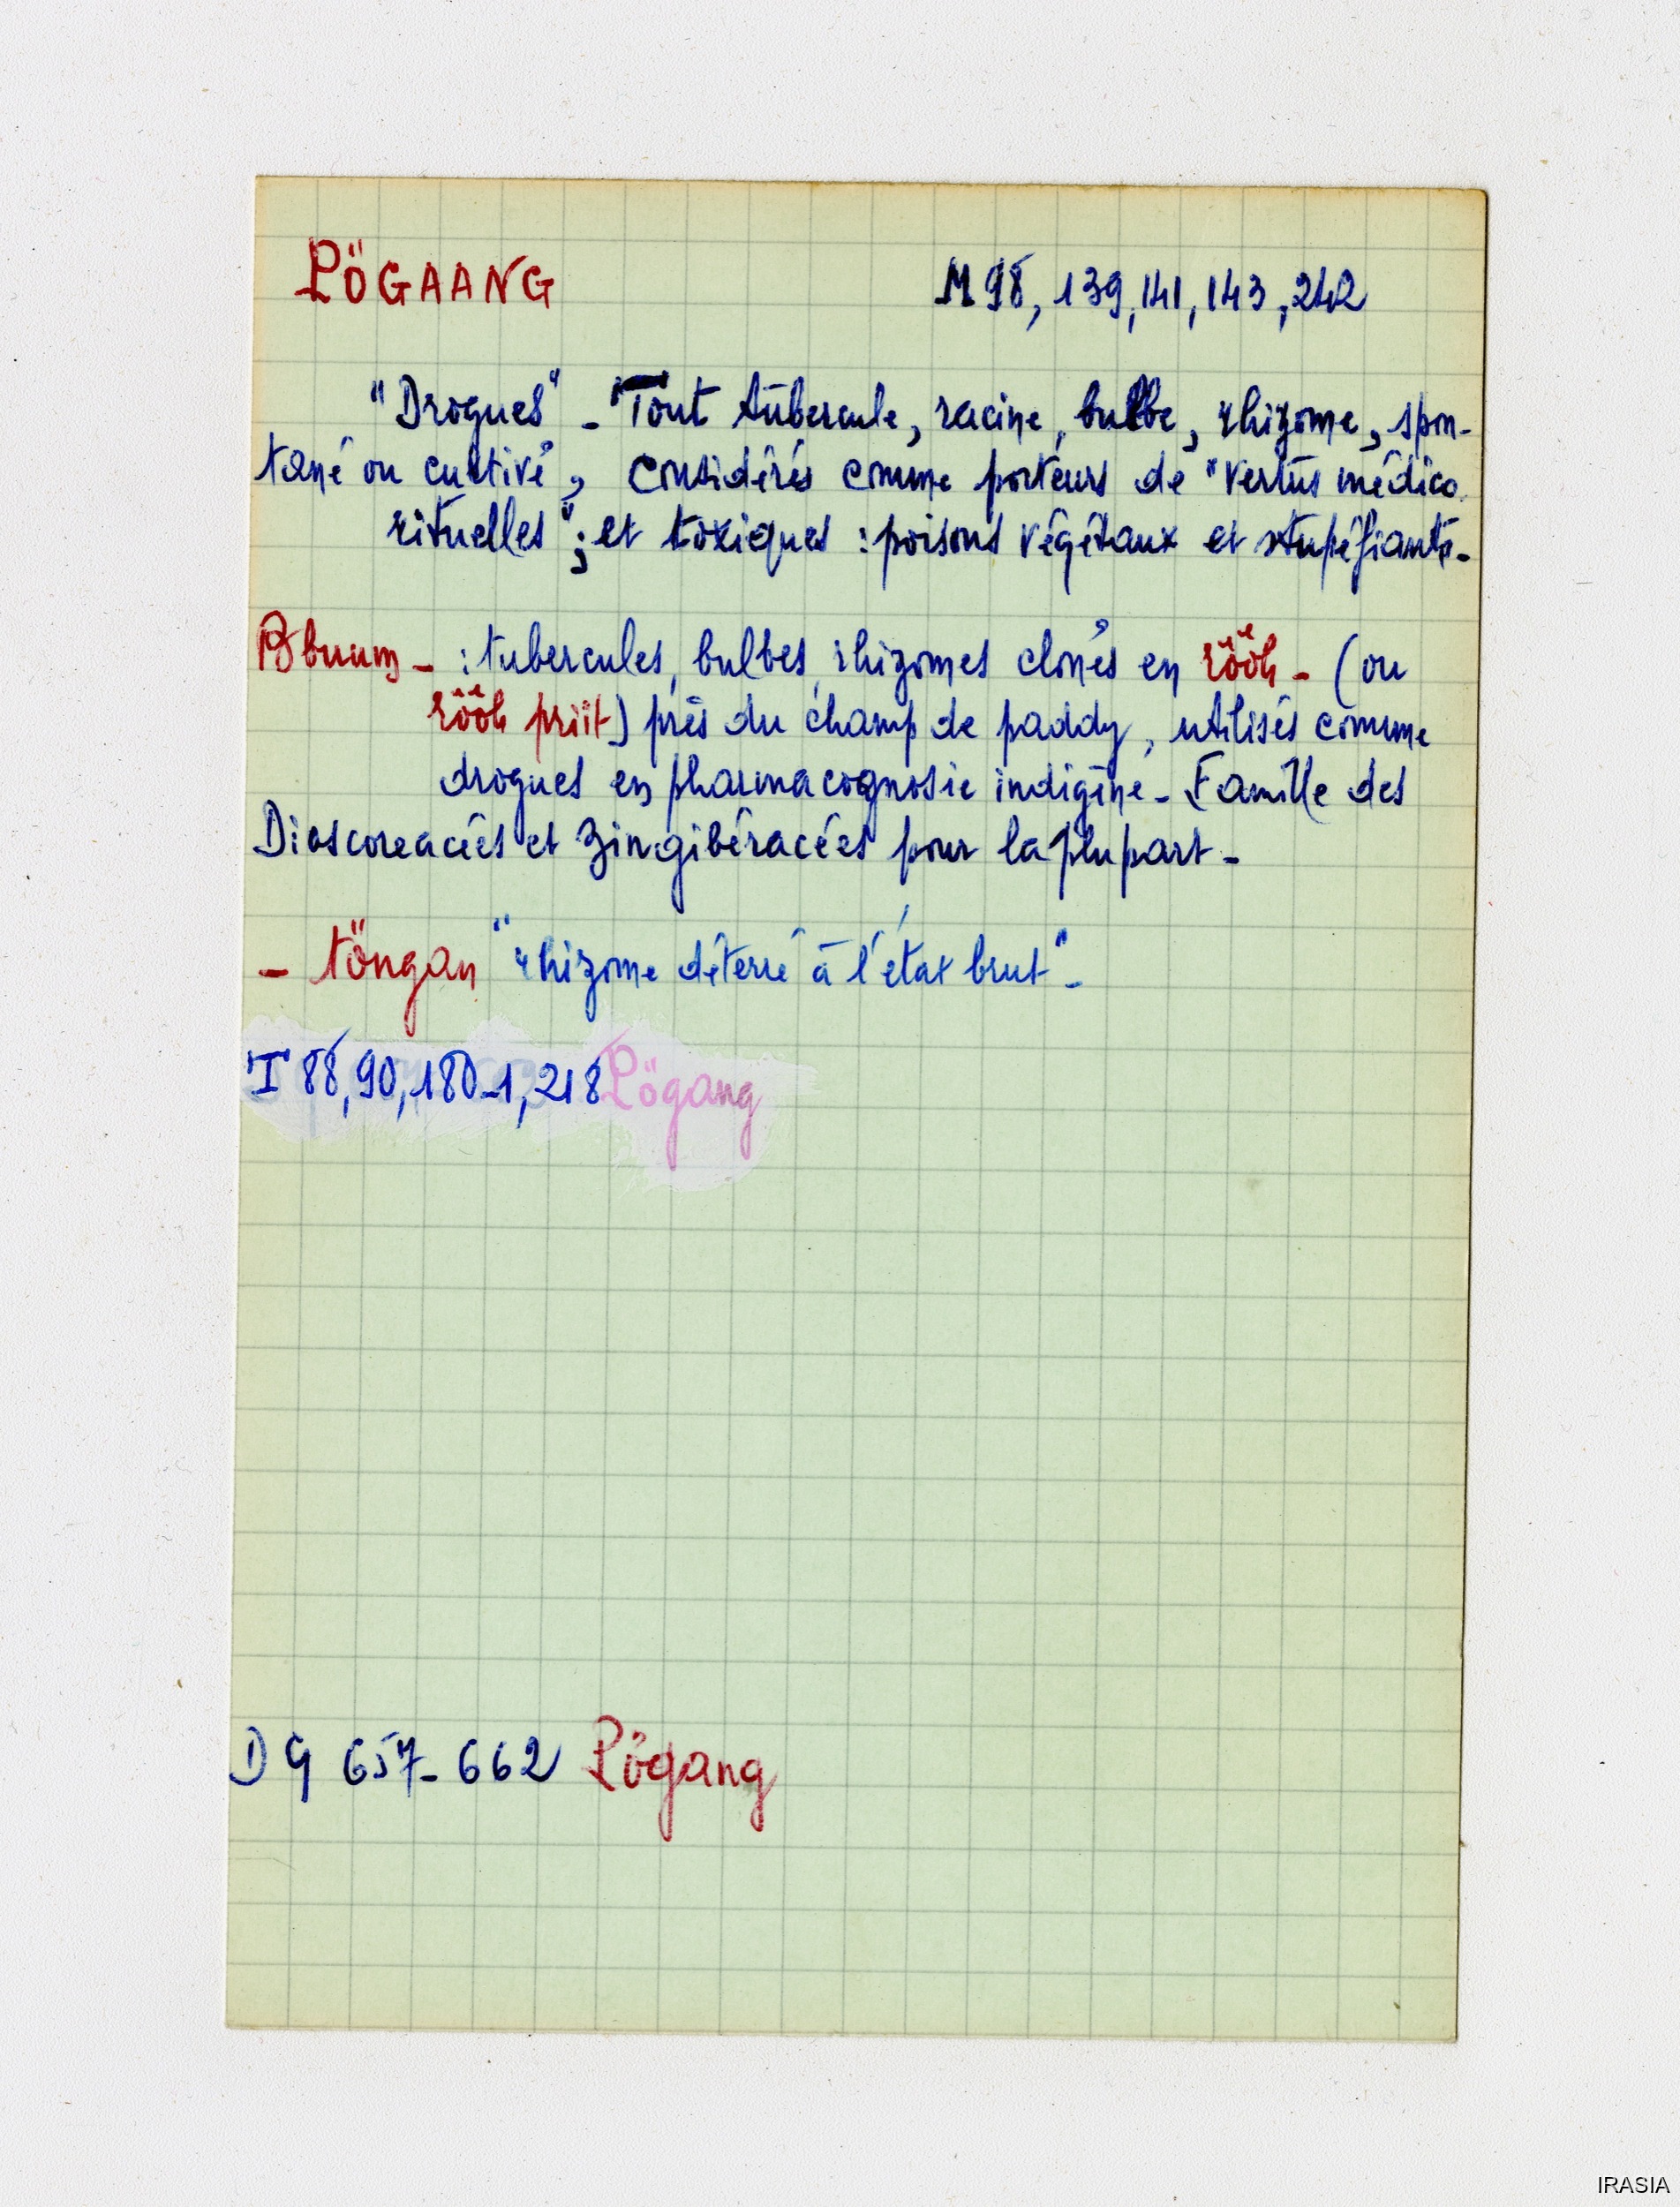 PÖGAANG M 98, 139, 141, 143, 242
"Drogues" - Tout tubercule, racine, bulbe, rhizome, spon-
tané ou cultivé, considérés comme porteurs de "vertus médico
rituelles"; et toxiques : poisons végétaux et stupéfiants -
- : tubercules, bulbes, rhizomes clonés en - (ou
priit) près du champ de paddy, utilisés comme
drogues en pharmacognosie indigène - Famille des
Dioscoreacées et Zingibéracées pour la plupart -
- töngan "rhizome déterré à l'état brut" -
I 88, 90, 180-1, 218 Pögang
DG 657-662 Pögang
IRASIA